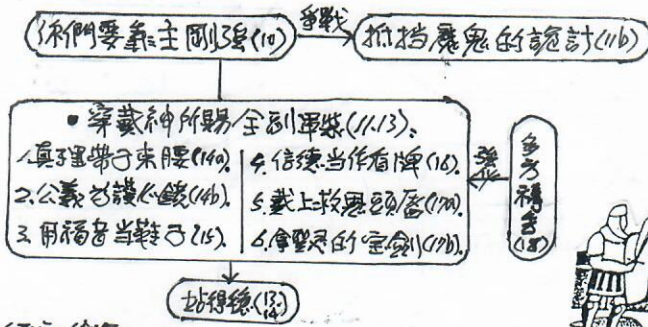 你們要靠主剛強(10)
爭戰
抵挡魔鬼的詭計(11b)
• 穿戴神所賜全副軍裝(11.13)。
1.真理當帶子束腰(14a).
2.公義當護心鏡(14b).
3.用福音当鞋子(15).
4.信德当作盾牌(16).
5.戴上救恩頭盔(17a).
6.拿聖灵的宝劍(17b).
多方禱告(18)
站得穩(13.14)